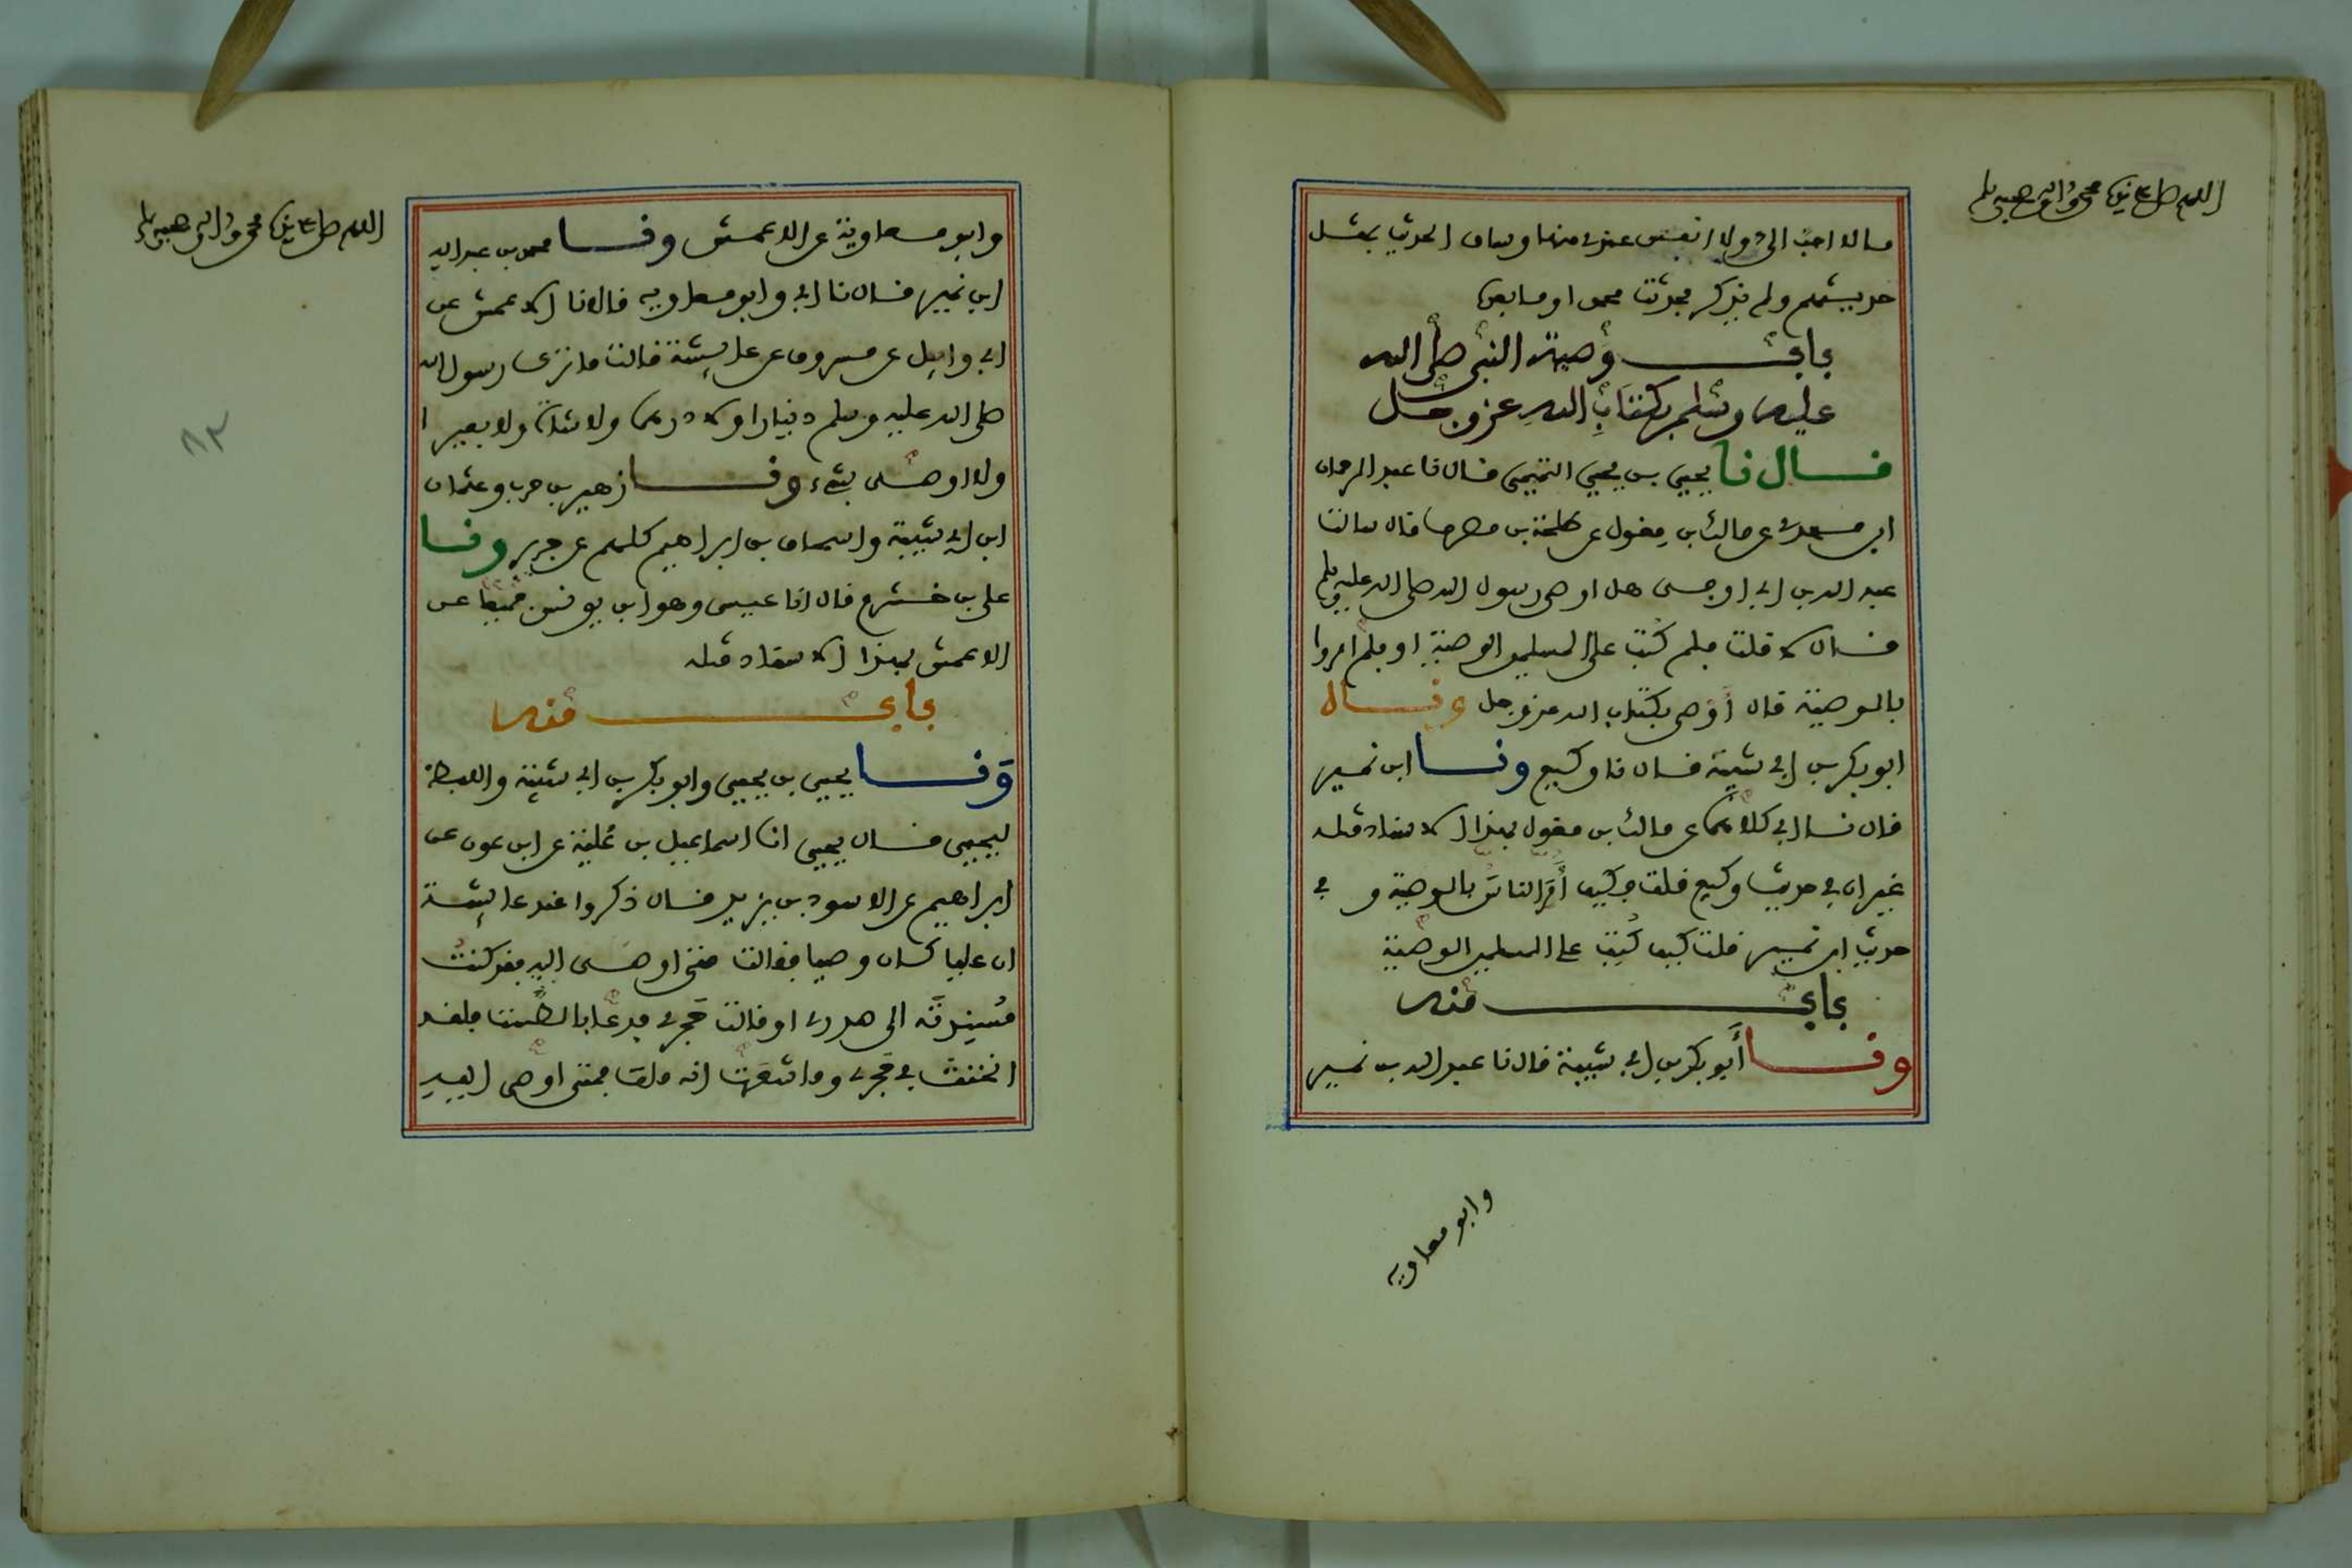 اللهم صل على سيدنا محمد واله وصحبه وسلم
مالا احب الي ولا انفس عندي منها وساق الحديث بمثل
حديثهم ولم يذكر فحدثت محمدا وما بعده
باب وصية النبي صلى الله
عليه وسلم بكتاب الله عز وجل
قال نا يحيى بن يحيى التميمي قال نا عبد الرحمان
ابن مهدي عن مالك بن مغول عن طلحة بن مصرف قال سالت
عبد الله بن ابي اوفى هل اوصى رسول الله صلى الله عليه وسلم
فقال لا قلت فلم كتب على المسلمين الوصية او فلم امروا
بالوصية قال اوصى بكتاب الله عز وجل وقال
ابو بكر بن ابي شيبة قال نا وكيع ونا ابن نمير
قال نا ابي كلاهما عن مالك بن مغول بهذا الاسناد مثله
غير ان في حديث وكيع قلت فكيف أمر الناس بالوصية و في
حديث ابن نمير قلت كيف كتب على المسلمين الوصية
باب منه
ونا أبو بكر بن ابي شيبة قال نا عبد الله بن نمير
وابو معاويه
اللهم صل على سيدنا محمد واله وصحبه وسلم
وابو معاوية عن الاعمش ونا محمد بن عبد الله
ابن نمير قال نا ابي وابو معاويه قالا نا الاعمش عن
ابي وايل عن مسروق عن عايشة قالت ما ترك رسول الله
صلى الله عليه وسلم دينارا ولا درهما ولا شاة ولا بعيرا
ولا اوصى بشيء ونا زهير بن حرب وعثمان
ابن ابي شيبة واسحاق بن ابراهيم كلهم عن جرير ونا
علي بن خشرم قال انا عيسى وهو ابن يونس جميعا عن
الاعمش بهذا الاسناد مثله
باب منه
ونا يحيى بن يحيى وابو بكر بن ابي شيبة واللفظ
ليحيى قال يحيى انا اسماعيل بن علية عن ابن عون عن
ابراهيم عن الاسود بن يزيد قال ذكروا عند عايشة
ان عليا كان وصيا فقالت متى اوصى اليه فقد كنت
مسندته الى صدري او قالت حجري فدعا بالطست فلقد
انخنث في حجري وما شعرت انه مات فمتى اوصى اليه
٨٢